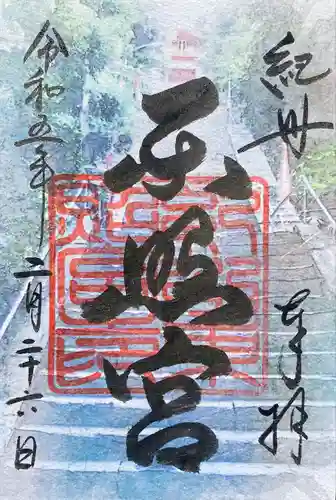 紀州 奉拝
東照宮
令和五年二月二十六日